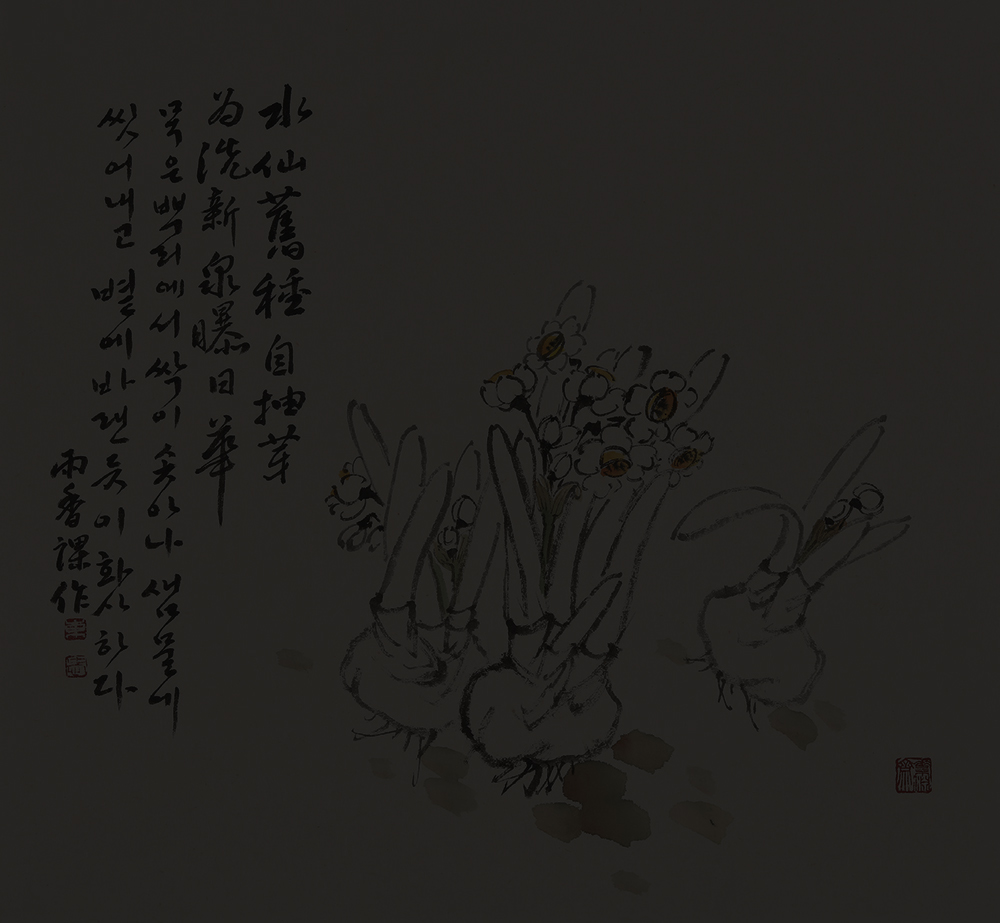 水仙舊種自抽芽
为洗新泉曝日華
묵은 에서 싹이 솟아나 샘물에
씻어내고 볕에 바랜 듯이 화사하다
雨香課作